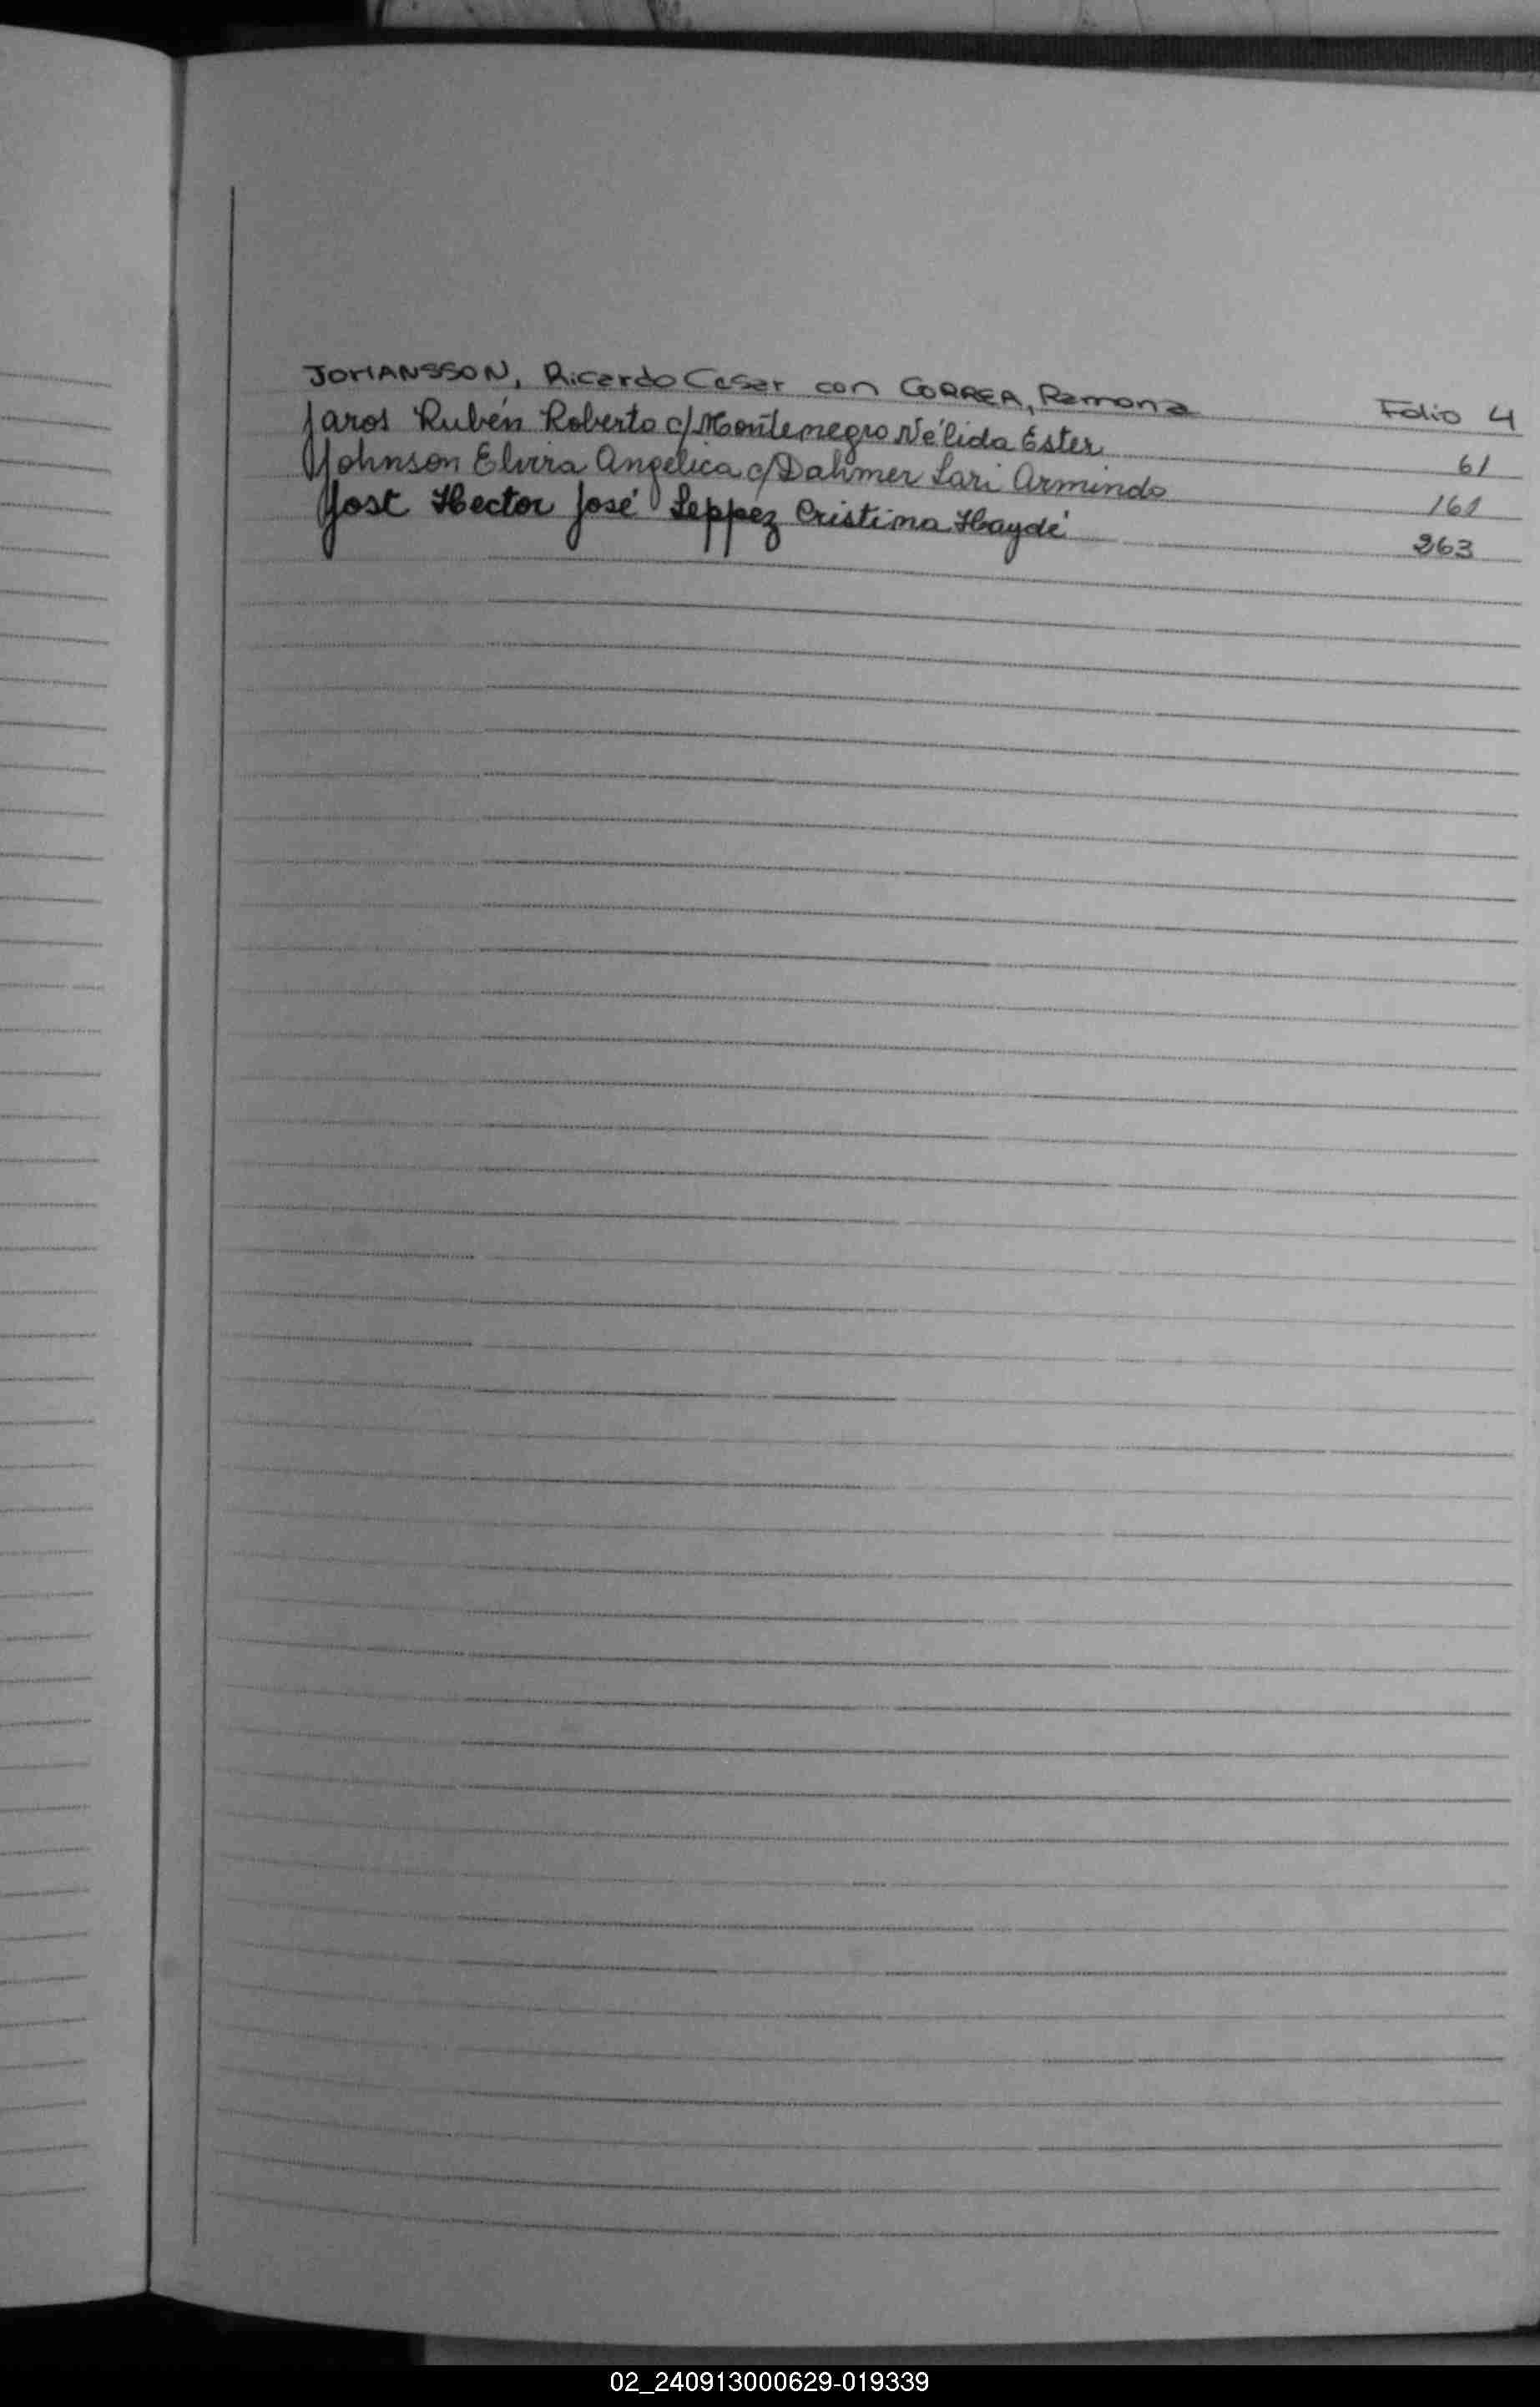 JOHANSSON, Ricardo Cesar con CORREA, Ramona Folio 4
Jaros Rubén Roberto c/ Montenegro Nélida Ester 61
Johnson Elvira Angelica c/ Dahmer Lari Armindo 161
Jost Hector José Leppez Cristina Haydé 263
02_240913000629-019339